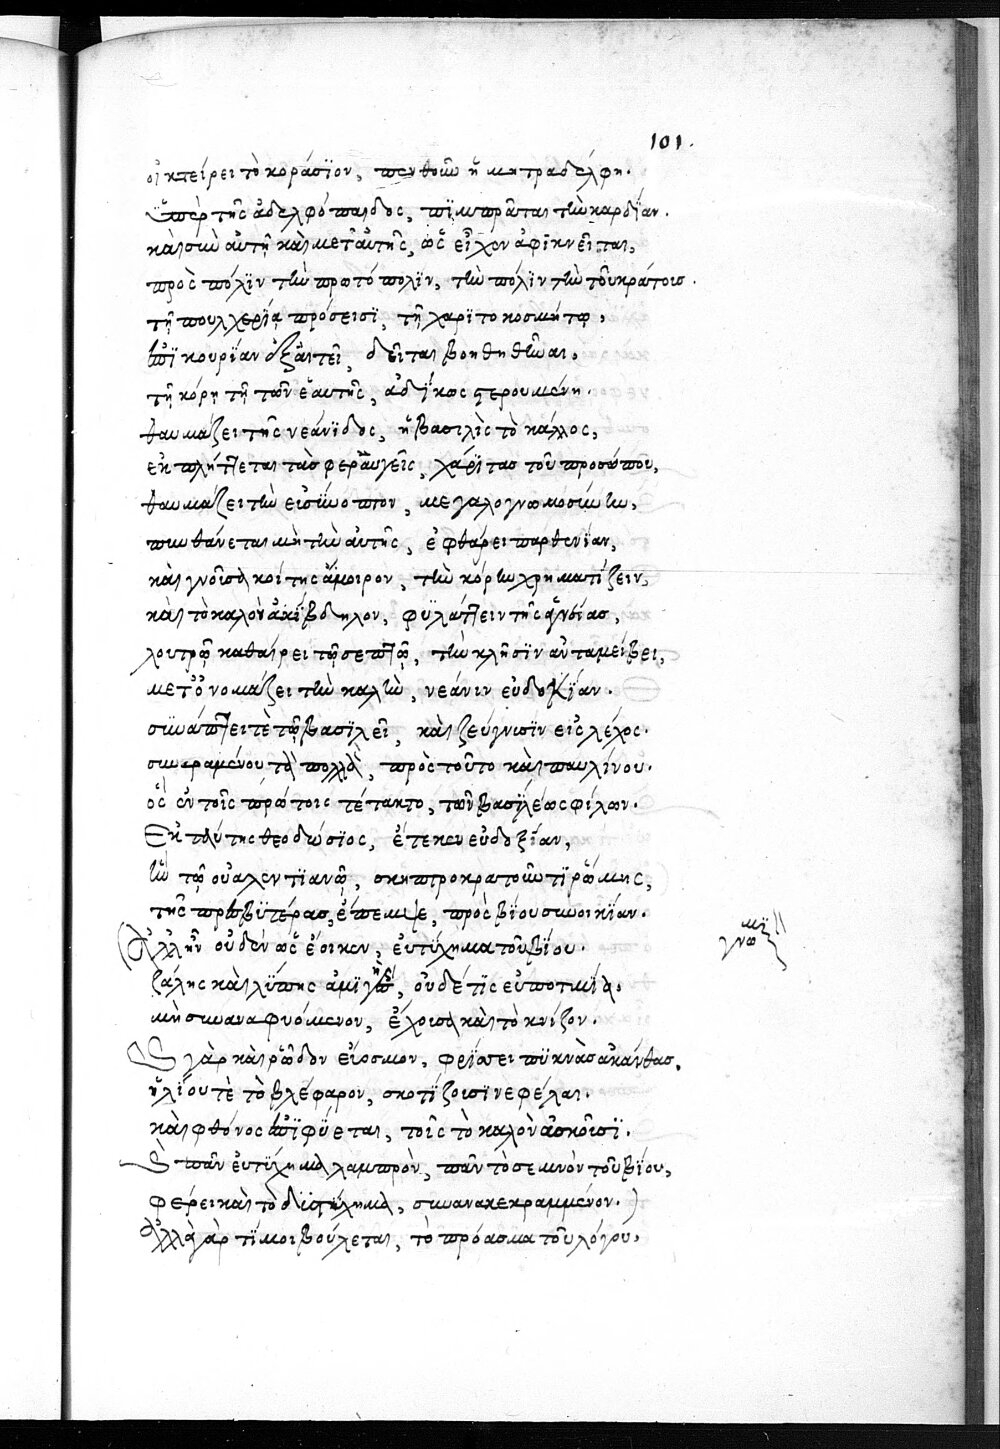 101.
οἰκτείρει τὸ κοράσϊον, πενθοῦν ἡ μητραδέλφη.
ὑπὲρ τῆς ἀδελφόπαιδος, πίμπραται τὴν καρδίαν.
καὶ σὺν αὐτῇ καὶ μετ' αὐτῆς, ὡς εἶχον ἀφικνεῖται,
πρὸς πόλϊν τὴν πρωτόπολϊν, τὴν πόλϊν τὴν τοῦ κράτους.
τῇ πουλχερίᾳ πρόσεισϊ, τῇ χαρϊτοκοσμήτῳ,
ἐπϊκουρίαν ἐξαιτεῖ, δεῖται βοηθηθῆναι,
τῇ κόρῃ τῇ τῶν ἑαυτῆς, ἀδίκως στερουμένῃ.
θαυμάζει τῆς νεάνϊδος, ἡ βασιλὶς τὸ κάλλος,
ἐκπλήττεται τὰς φεραυγεῖς, χάρϊτας τοῦ προσώπου,
θαυμάζει τὴν εἰσϊοῦσαν, μεγαλογνωμοσύνην,
πυνθάνεται μὴ τὴν αὐτῆς, ἐφθάρει παρθενίαν,
καὶ γνοῦσα κοίτης ἄμοιρον, τὴν κόρην χρηματίζειν,
καὶ τὸ καλὸν ἀκίβδηλον, φϋλάττειν τῆς ἁγνείας,
λουτρῷ καθαίρει τῷ σεπτῷ, τὴν κλῆσϊν ἀνταμείβει,
μετονομάζει τὴν καλὴν, νεάνιν εὐδοκίαν.
συνάπτει τὲ τῷ βασϊλεῖ, καὶ ζεύγνυσϊν εἰς λέχος.
συνεραμένου τὰ πολλὰ, πρὸς τοῦτο καὶ παυλίνου.
ὃς ἐν τοῖς πρώτοις τέτακτο, τῶν βασϊλέως φίλων.
Ἐκ ταύτης θεοδώσϊος, ἔτεκεν εὐδοξίαν,
ἣν τῷ οὐαλεντϊανῷ, σκηπτροκρατοῦντϊ ῥώμης,
τῆς πρεσβϋτέρας, ἔπεμψε, πρὸς βίου συνοικίαν.
Ἀλλ' ἦν οὐδὲν ὡς ἔοικεν, εὐτύχημα τοῦ βίου.
ζάλης καὶ λύπης ἀμϊγὲς, οὐδέ τϊς εὐποτμία,
μὴ συναναφυόμενον, ἔχουσα καὶ τὸ κνίζον.
Ὡς γὰρ καὶ ῥόδον εὔοσμον, φρίσσει πϋκνὰς ἀκάνθας,
ἡλίου τὲ τὸ βλέφαρον, σκοτίζουσϊ νεφέλαι.
καὶ φθόνος ἐπϊφύεται, τοῖς τὸ καλὸν ἀσκοῦσϊ.
Ὡς πᾶν εὐτύχημα λαμπρὸν, πᾶν τὸ σεμνὸν τοῦ βίου,
φέρει καὶ τὸ δϋστύχημα, συνανακεκραμμένον.
Ἀλλὰ γὰρ τί μοι βούλεται, τὸ πρόασμα τοῦ λόγου,
γνώμη